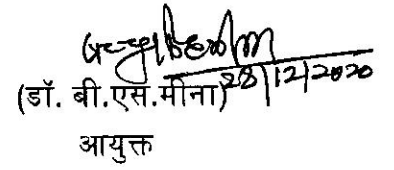 28/12/2020
(डॉ. बी.एस.मीना)
आयुक्त